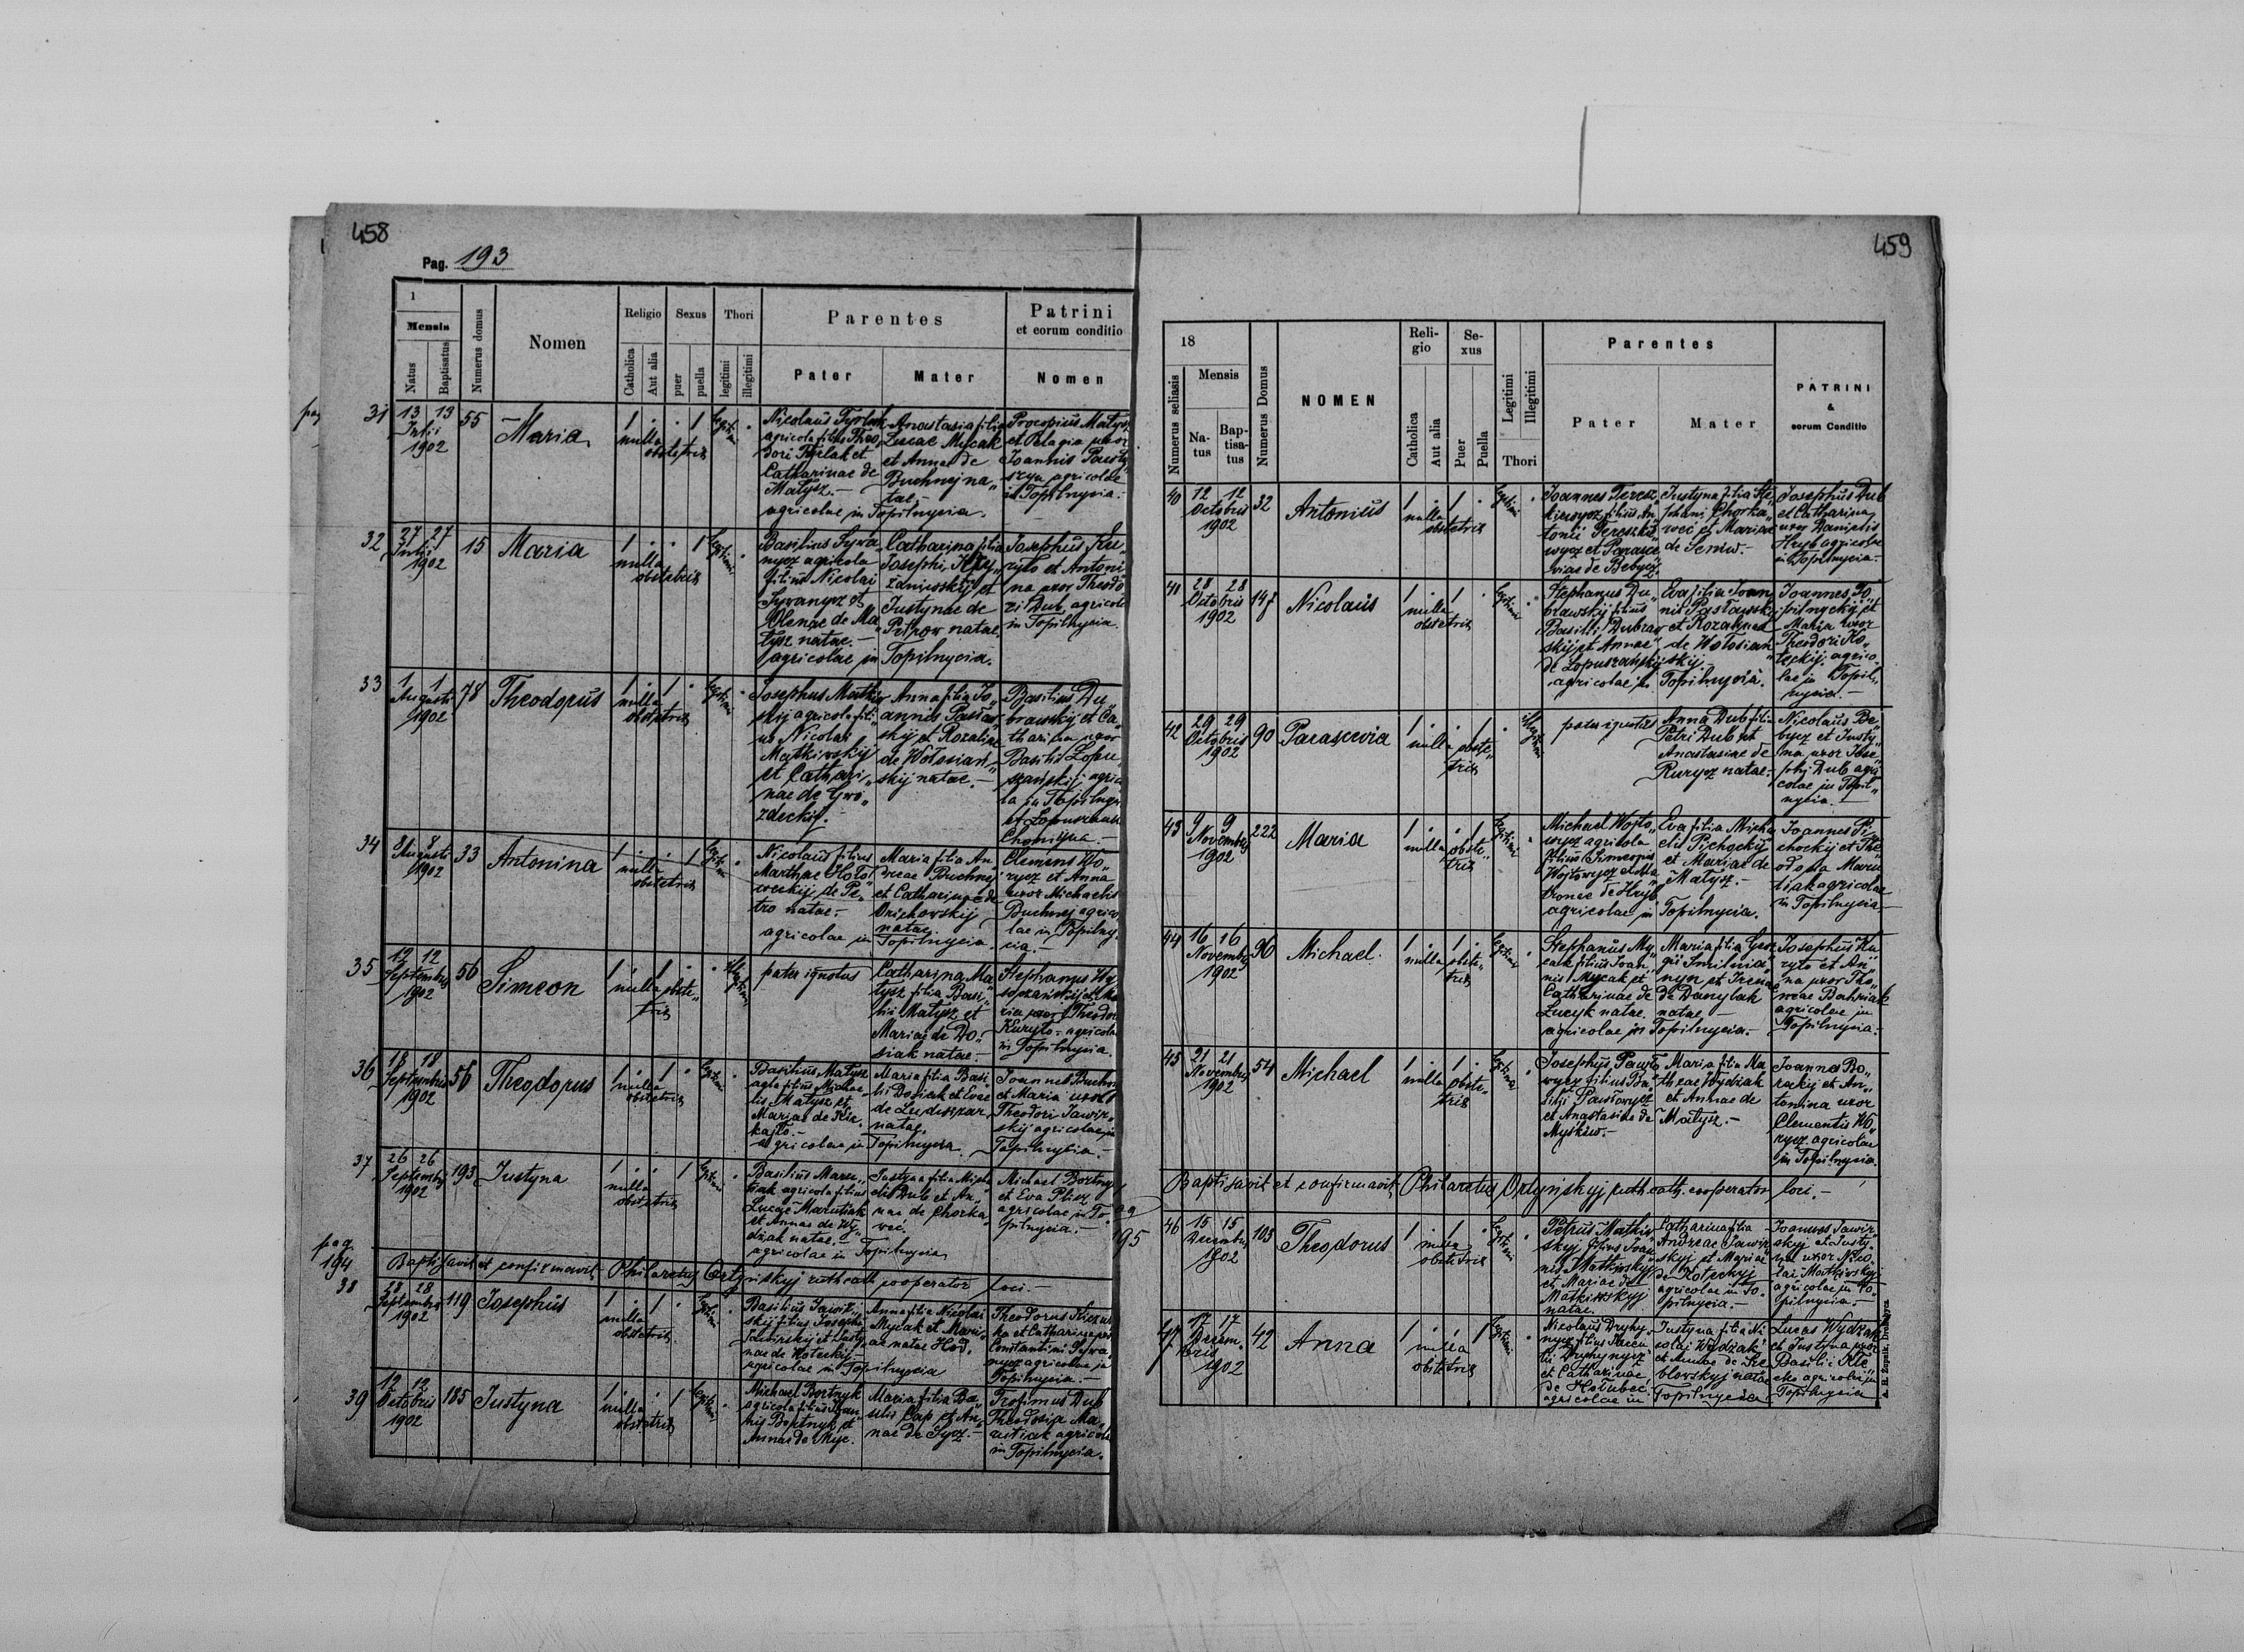 458
Pag. 193
1
Mensis
Natus
Baptisatus
Numerus domus
Nomen
Religio
Catholica
Aut alia
Sexus
puer
puella
Thori
legitimi
illegitimi
Parentes
Pater
Mater
Patrini
et eorum conditio
Nomen
pag
31
13 13
Julii
1902
55
Maria
1 . . 1
nulla
obstetrix
legitimi
Nicolaus
agricola filius Theo„
dori et
Catharinae de
Matysz.—
agricolae in Topilnycia.
Anastasia filia
Lucae Mycak
et Annae de
Buchnej na„
tae.—
Procopius Matysz
et Pelagia uxor
Joannis
agricolae
in Topilnycia.—
32
27 27
Julii
1902
15
Maria
1 . . 1
nulla
obstetrix
legitimi
Basilius Sywa„
nycz agricola
filius Nicolai
Sywanycz et
Olenae de Ma„
tysz natae.—
agricolae in Topilnycia.
Catharina filia
Josephi
et
Justynae de
Petrow natae.
Josephus Ku„
ryło et Antoni„
na uxor Theodo„
ri Dub agricolae
in Topilnycia.
33
1 1
Augusti
1902
78
Theodorus
1 . 1 .
nulla
obstetrix
legitimi
Josephus Matkiw„
skij agricola fili„
us Nicolai
Matkiwskij
et Cathari„
nae de Gwo„
zdeckij.—
Anna filia Jo„
annis Pasław„
skij et Rozaliae
de Wołosian„
skij natae.—
Basilius Du„
brawskij et Ca„
tharina uxor
Basilii Łopu„
szanskij agrico„
la in Topilnycia
et Łopuszanka
Chomina.—
34
8 8
Augusti
1902
33
Antonina
1 . . 1
nulla
obstetrix
legitimi
Nicolaus filius
Marthae Hoło„
weckij de Pe„
tro natae.—
agricolae in Topilnycia.
Maria filia An„
dreae Buchnej
et Catharinae de
Orichowskij
natae.
Clemens Wo„
rycz et Anna
uxor Michaelis
Buchnej agrico„
lae in Topilny„
cia.—
35
12 12
Septembris
1902
56
Simeon
1 . 1 .
nulla obste„
trix
illegitimi
pater ignotus
Catharina Ma„
tysz filia Basi„
lii Matysz et
Mariae de Do„
siak natae.—
Stephanus Wy„
soczanskij et Ma„
ria uxor Theodori
Kuryło — agricolae
in Topilnycia.
36
18 18
Septembris
1902
56
Theodorus
1 . 1 .
nulla
obstetrix
legitimi
Basilius Matysz
agla filius Michae„
lis Matysz et
Mariae de
agricolae in Topilnycia.
Maria filia Basi„
lii Dosiak et Evae
de
natae.
Joannes Buchnej
et Maria uxor
Theodori Jawir„
skij agricolae in
Topilnycia.—
37
26 26
Septembris
1902
193
Justyna
1 . . 1
nulla
obstetrix
legitimi
Basilius Maru„
tiak agricola filius
Lucae Marutiak
et Annae de Wy„
dżak natae.—
agricolae in Topilnycia
Justyna filia Micha„
elis Dub et An„
nae de Chorka„
weć.
Michael Bortnyk
et Eva
agricolae in To„
pilnycia.—
pag
194
Baptisavit et confirmavit Philaretus Ortynskyj ruth cath cooperator loci.—
38
28 28
Septembris
1902
119
Josephus
1 . 1 .
nulla
obstetrix
legitimi
Basilius Jawir„
skij filius Josephi
Jawirskij et Justy„
nae de Koteckij—
agricolae in Topilnycia
Anna filia Nicolai
Mycak et Mari„
ae natae Hod.
Theodorus
et Catharina uxor
Constantini Sywa„
nycz agricolae in
Topilnycia.—
39
12 12
Octobris
1902
185
Justyna
1 . . 1
nulla
obstetrix
legitimi
Michael Bortnyk
agricola filius Joan„
nis Bortnyk et
Annae de Myc.
Maria filia Ba„
silii Cap et An„
nae de Sycz.—
Trofimus Dub
Theodosia Ma„
rutiak agricolae
in Topilnycia.
459
18
Numerus seliasis
Mensis
Na-
tus
Bap-
tisa-
tus
Numerus Domus
NOMEN
Reli-
gio
Catholica
Aut alia
Se-
xus
Puer
Puella
Legitimi
Illegitimi
Thori
Parentes
Pater
Mater
PATRINI
&
eorum Conditio
40
12 12
Octobris
1902
32
Antonius
1 . 1 .
nulla
obstetrix
legitimi
Joannes Teresz„
kiewycz filius An„
tonii Tereszke„
wycz et Parasce„
wiae de Bebycz.
Justyna filia Ste„
phani Chorka„
weć et Mariae
de Seniw.—
Josephus Dub
et Catharina
uxor Danielis
Hryb agricolae
in Topilnycia.—
41
28 28
Octobris
1902
147
Nicolaus
1 . 1 .
nulla
obstetrix
legitimi
Stephanus Du„
brawskij filius
Basilii Dubraw„
skij et Annae
de Łopuszanskij
agricolae in Topilnycia.
Eva filia Joan„
nis Pasławsk
et Rozaliae
de Wołosian„
skij—
Joannes To„
pilnyckij et
Maria uxor
Theodori Ko„
teckij agrico„
lae in Topil„
nycia.—
42
29 29
Octobris
1902
90
Parascevia
1 . . 1
nulla obste„
trix
illegitimi
pater ignotus
Anna Dub filia
Petri Dub et
Anastasiae de
Kurycz natae.—
Nicolaus Be„
bycz et Justy„
na uxor Jose„
phi Dub agri„
colae in Topil„
nycia.—
43
9 9
Novembris
1902
222
Maria
1 . . 1
nulla obste„
trix
legitimi
Michael Wojto„
wycz agricola
filius Simeonis
Wojtowycz et Ma„
tronae de Hryb
agricolae in Topilnycia.
Eva filia Micha„
elis Pichockij
et Mariae de
Matysz.—
Joannes Pi„
chockij et The„
odosia Maru„
tiak agricolae
in Topilnycia.—
44
16 16
Novembris
1902
96
Michael.
1 . 1 .
nulla obste„
trix
legitimi
Stephanus My„
cak filius Joan„
nis Mycak et
Catharinae de
Łucyk natae.
agricolae in Topilnycia.—
Maria filia Geor„
gii
nycz et Irenae
de Danylak
natae—
Josephus Ku„
ryło et An„
na uxor Tho„
mae
agricolae in
Topilnycia.—
45
21 21
Novembris
1902
54
Michael
1 . 1 .
nulla obste„
trix
legitimi
Josephus Pawło„
wycz filius Ba„
silii Pawłowycz
et Anastasiae de
Myśkiw.—
Maria filia Ma„
theae Wydżak
et Annae de
Matysz.—
Joannes Bo„
rackij et An„
tonina uxor
Clementis Wo„
rycz agricolae
in Topilnycia.
Baptisavit et confirmavit Philaretus Ortynskyj ruth cath. cooperator loci.—
pag
195
46
15 15
Decembris
1902
103
Theodorus
1 . 1 .
nulla
obstetrix
legitimi
Petrus Matkiw„
skyj filius Joan„
nis Matkiwskyj
et Mariae de
Matkiwskyj
natae.
Catharina filia
Andreae Jawir„
skyj et Mariae
de Koteckyj
agricolae in To„
pilnycia.—
Joannes Jawir„
skyj et Justy„
na uxor Nico„
lai Matkiwskyj
agricolae in To„
pilnycia.—
47
17 17
Decem„
bris
1902
42
Anna
1 . . 1
nulla
obstetrix
legitimi
Nicolaus Druhy„
nycz filius
Druhynycz
et Catharinae
de Hołubec
agricolae in Topilnycia
Justyna filia Ni„
colai Wydżak
et Annae de
natae
Lucas Wydżak
et Justyna uxor
Basilii
agricolae in
Topilnycia
A. H. Żupnik, Drohobycz.